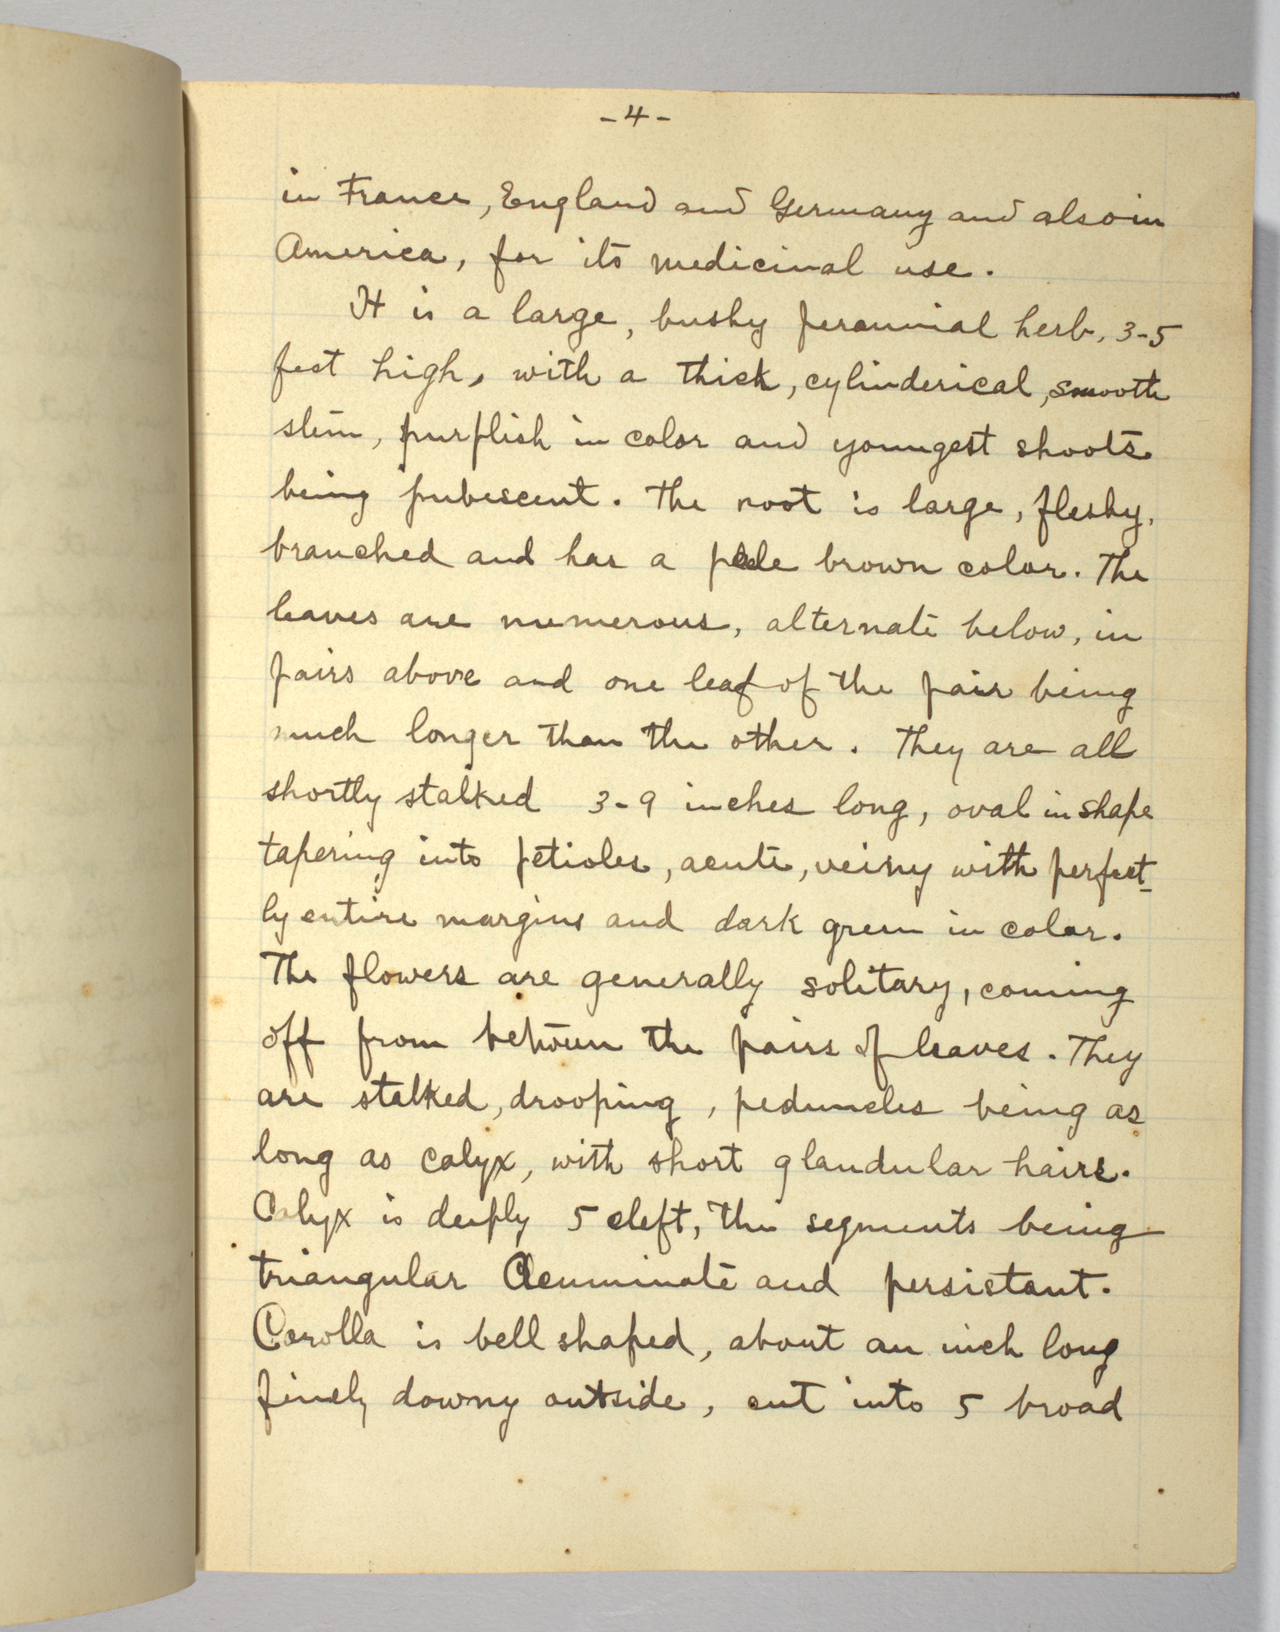 -4-
in France, England and Germany and also in
America, for its medicinal use.
It is a large, bushy perannial herb, 3-5
feet high, with a thick, cylinderical, smooth
stem, purplish in color and youngest shoots
being pubescent. The root is large, fleshy,
branched and has a pale brown color. The
leaves are numerous, alternate below, in
pairs above and one leaf of the pair being
much longer than the other. They are all
shortly stalked 3-9 inches long, oval in shape
tapering into petioles, acute, veiny with perfect-
ly entire margins and dark green in color.
The flowers are generally solitary, coming
off from between the pairs of leaves. They
are stalked, drooping, peduncles being as
long as calyx, with short glandular hairs.
Calyx is deeply 5 cleft, the segments being
triangular Acuminate and persistant.
Corolla is bell shaped, about an inch long
finely downy outside, cut into 5 broad